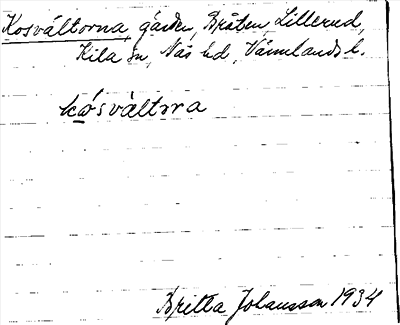 Kosvältorna, gärden, Bråten, Lillerud,
Kila sn, Näs hd, Värmlands l.
kósvàltɷra
Britta Johansson 1934